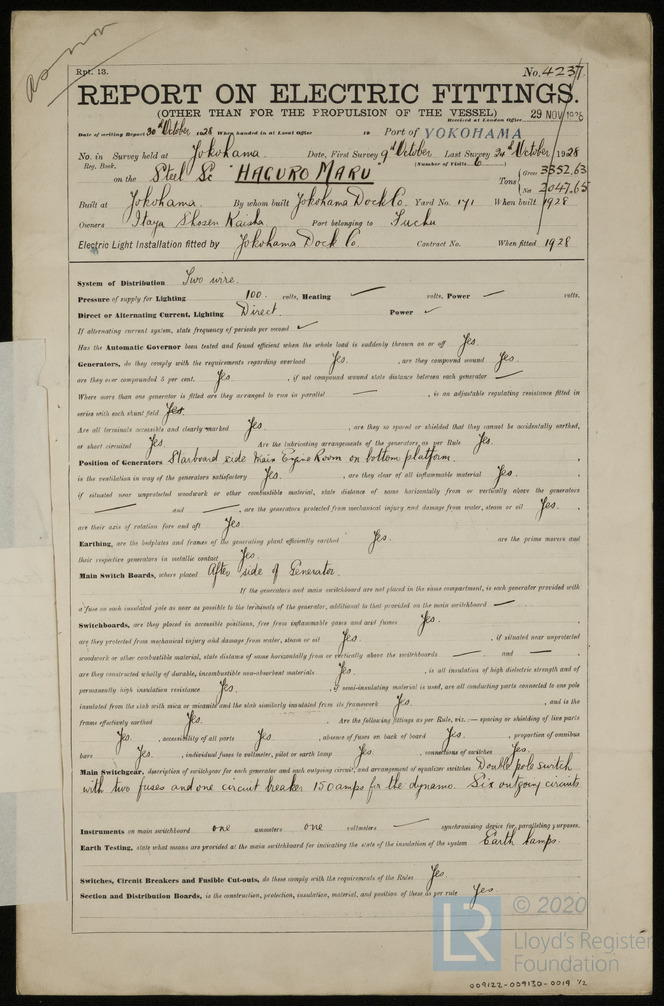 as now
Rpt. 13. No. 4237
REPORT ON ELECTRIC FITTINGS.
(OTHER THAN FOR THE PROPULSION OF THE VESSEL) 29 NOV 1928
Received at London Office
Date of writing Report 30th October 1928 When handed in at Local Office 19 Port of YOKOHAMA
No. in Survey held at Yokohama. Date, First Survey 9th October Last Survey October 1928
Reg. Book. (Number of Visits 6)
on the Steel Sc "HAGURO MARU" Tons Gross 3352.63
Net 2047.65
Built at Yokohama. By whom built Yokohama Dock Co. Yard No. 171 When built 1928
Owners Itaya Shosen Kaisha Port belonging to Fuchu
Electric Light Installation fitted by Yokohama Dock Co. Contract No. When fitted 1928
System of Distribution Two wire.
Pressure of supply for Lighting 100. volts, Heating — volts, Power — volts.
Direct or Alternating Current, Lighting Direct. Power ✓
If alternating current system, state frequency of periods per second ✓
Has the Automatic Governor been tested and found efficient when the whole load is suddenly thrown on or off Yes.
Generators, do they comply with the requirements regarding overload Yes. , are they compound wound Yes.
are they over compounded 5 per cent. Yes , if not compound wound state distance between each generator —
Where more than one generator is fitted are they arranged to run in parallel — , is an adjustable regulating resistance fitted in
series with each shunt field Yes.
Are all terminals accessible and clearly marked Yes. , are they so spaced or shielded that they cannot be accidentally earthed,
or short circuited Yes. Are the lubricating arrangements of the generators as per Rule Yes.
Position of Generators Starboard side Main Engine Room on bottom platform.
is the ventilation in way of the generators satisfactory Yes. , are they clear of all inflammable material Yes.
if situated near unprotected woodwork or other combustible material, state distance of same horizontally from or vertically above the generators
— and — , are the generators protected from mechanical injury and damage from water, steam or oil Yes.
are their axis of rotation fore and aft Yes.
Earthing, are the bedplates and frames of the generating plant efficiently earthed Yes. are the prime movers and
their respective generators in metallic contact Yes.
Main Switch Boards, where placed After side of Generator.
If the generators and main switchboard are not placed in the same compartment, is each generator provided with
a fuse on each insulated pole as near as possible to the terminals of the generator, additional to that provided on the main switchboard —
Switchboards, are they placed in accessible positions, free from inflammable gases and acid fumes Yes.
are they protected from mechanical injury and damage from water, steam or oil Yes. , if situated near unprotected
woodwork or other combustible material, state distance of same horizontally from or vertically above the switchboards — and —
are they constructed wholly of durable, incombustible non-absorbent materials Yes. , is all insulation of high dielectric strength and of
permanently high insulation resistance Yes. , if semi-insulating material is used, are all conducting parts connected to one pole
insulated from the slab with mica or micanite and the slab similarly insulated from its framework Yes. , and is the
frame effectively earthed Yes. . Are the following fittings as per Rule, viz. :— spacing or shielding of live parts
Yes. , accessibility of all parts Yes. , absence of fuses on back of board Yes. , proportion of omnibus
bars Yes. , individual fuses to voltmeter, pilot or earth lamp Yes. , connections of switches Yes.
Main Switchgear, description of switchgear for each generator and each outgoing circuit, and arrangement of equalizer switches Double pole switch
with two fuses and one circuit breaker 150 amps for the dynamo. Six outgoing circuits
Instruments on main switchboard one ammeters one voltmeters — synchronising device for paralleling purposes.
Earth Testing, state what means are provided at the main switchboard for indicating the state of the insulation of the system Earth lamps.
Switches, Circuit Breakers and Fusible Cut-outs, do these comply with the requirements of the Rules Yes.
Section and Distribution Boards, is the construction, protection, insulation, material, and position of these as per rule Yes.
LR © 2020
Lloyd's Register
Foundation
009122-009130-0019 1/2